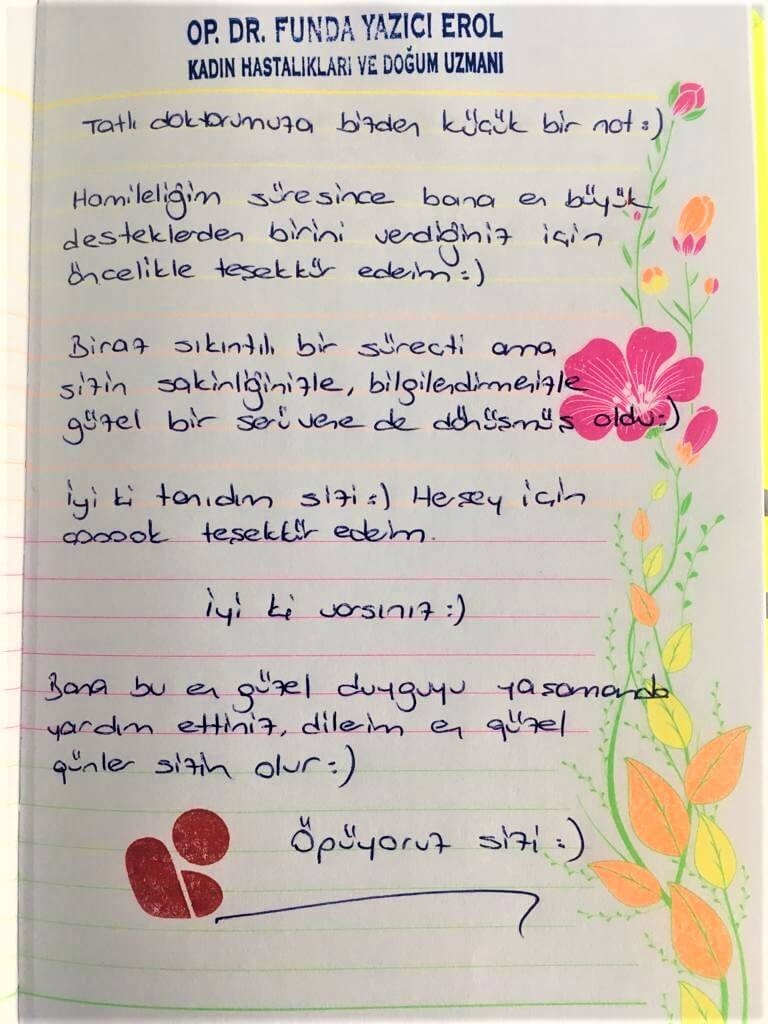 OP. DR. FUNDA YAZICI EROL
KADIN HASTALIKLARI VE DOĞUM UZMANI
Tatlı doktorumuza bizden küçük bir not :)
Hamileliğim süresince bana en büyük
desteklerden birini verdiğiniz için
öncelikle teşekkür ederim :)
Biraz sıkıntılı bir süreçti ama
sizin sakinliğinizle, bilgilendirmenizle
güzel bir serüvene de dönüşmüş oldu :)
İyi ki tanıdım sizi :) Herşey için
çooook teşekkür ederim.
İyi ki varsınız :)
Bana bu en güzel duyguyu yaşamamda
yardım ettiniz, dilerim en güzel
günler sizin olur :)
Öpüyoruz sizi :)